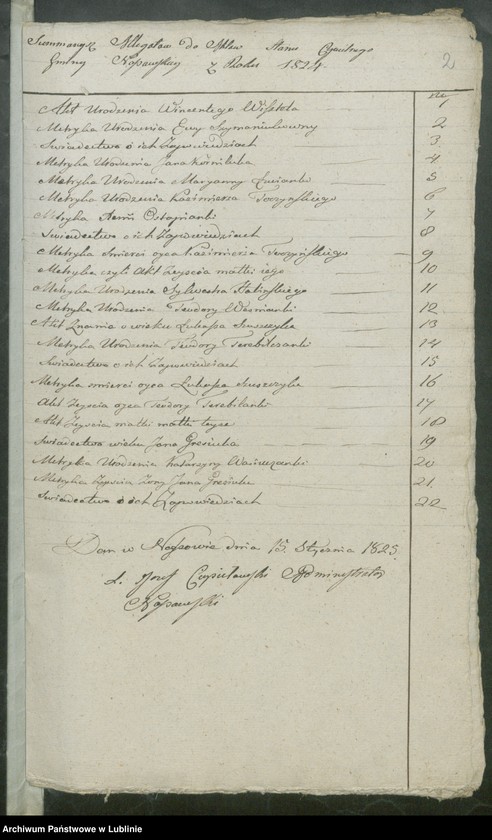 Summaryusz Allegatow do Aktow Stanu Cywilnego
Gminy z Roku 1824.
2
Nro
Akt Urodzenia Wincentego 1
Metryka Urodzenia Ewy Szymaniukowny 2
Swiadectwo o ich Zapowiedziach 3
Metryka Urodzenia Jana 4
Metryka Urodzenia Maryanny 5
Metryka Urodzenia Kazimierza Toczyskiego 6
Metryka Anny Ostapianki 7
Swiadectwo o ich Zapowiedziach 8
Metryka Smierci oyca Kazimierza 9
Metryka czyli Akt Zeyscia matki iego 10
Metryka Urodzenia Sylwestra 11
Metryka Urodzenia Teodory 12
Akt Znania o wieku Łukasza Suszczyka 13
Metryka Urodzenia Teodory 14
Swiadectwo o ich Zapowiedziach 15
Metryka smierci oyca Łukasza Suszczyka 16
Akt Zeyscia oyca Teodory 17
Akt Zeyscia matki teyze 18
Swiadectwo wieku Jana Gresiuka 19
Metryka Urodzenia Katarzyny 20
Metryka Zeyscia Zony Jana Gresiuka 21
Swiadectwo o ich Zapowiedziach 22
Dan w dnia 15. Stycznia 1825.
X. Jozef Administrator
Archiwum Państwowe w Lublinie